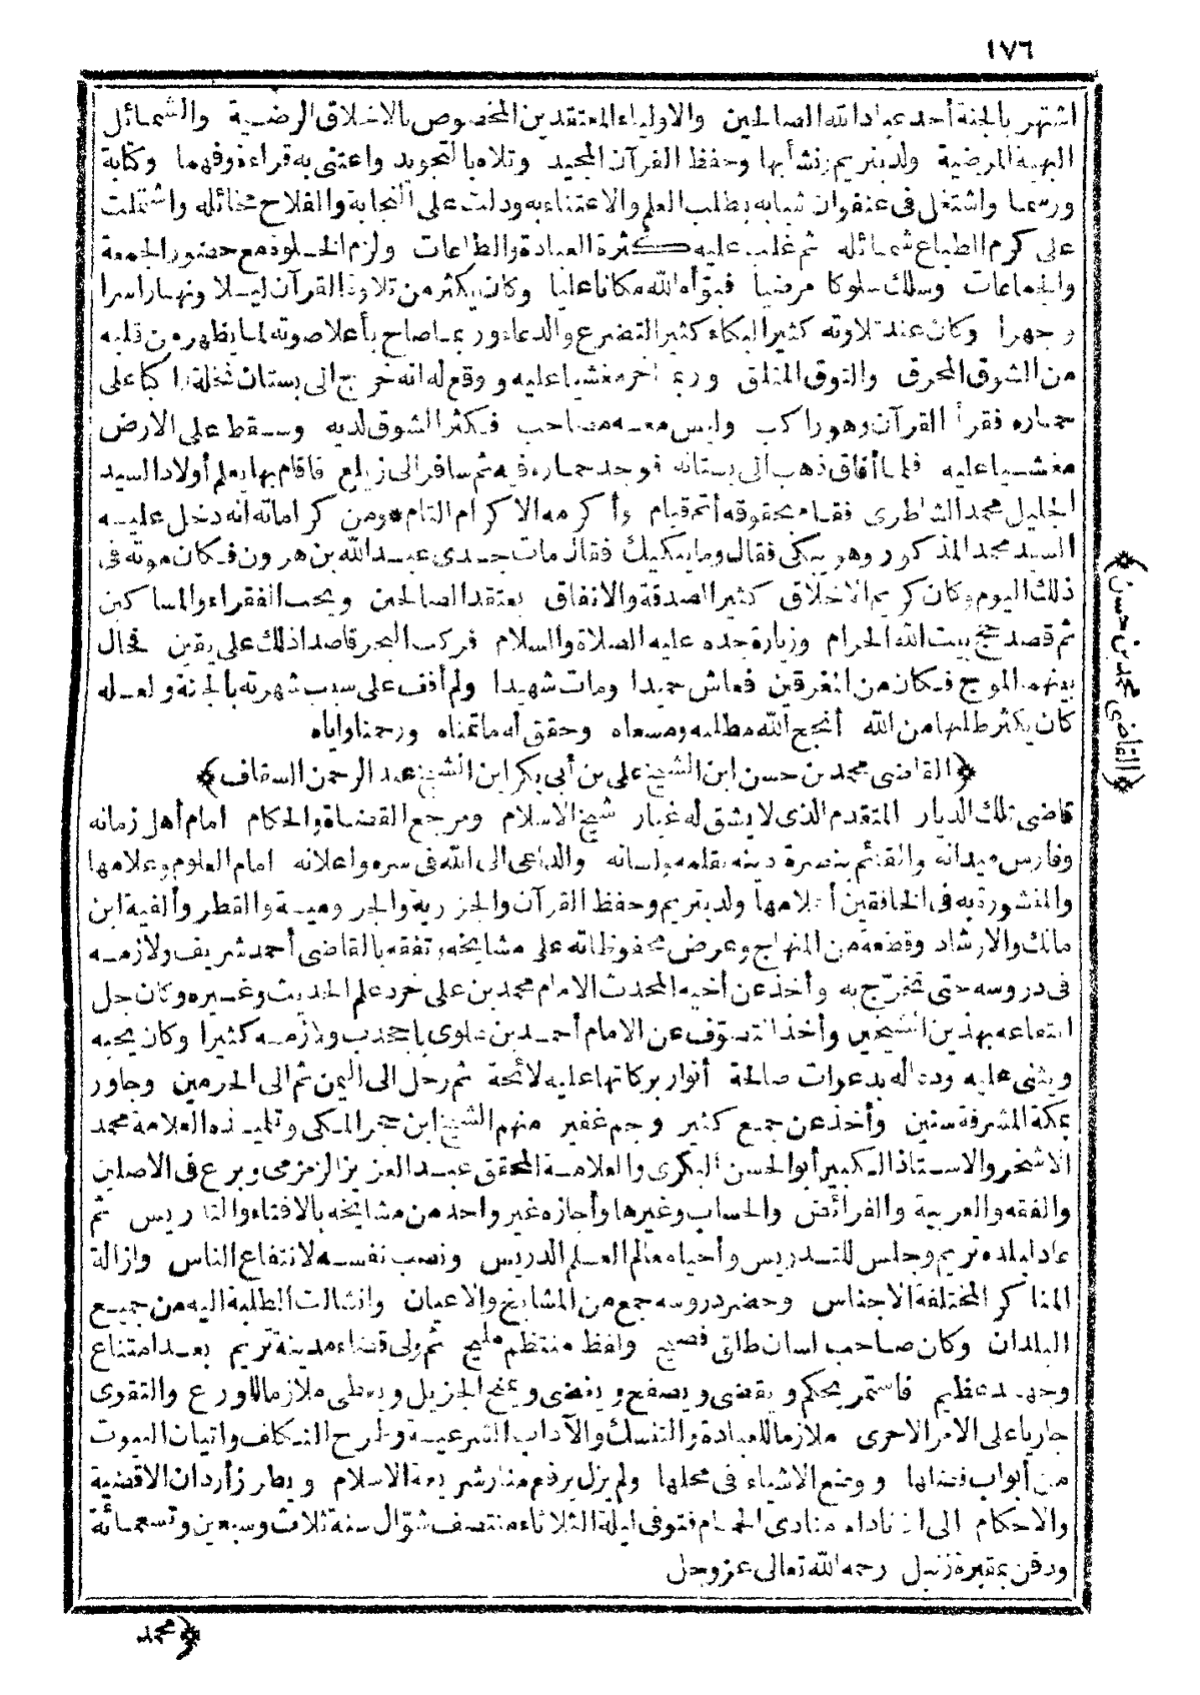 ١٧٦
اشتهر بالجنة أحد عباد الله الصالحين والاولياء المعتقدين المخصوص بالاخلاق الرضية والشمائل
البهية المرضية ولد بتريم ونشأ بها وحفظ القرآن المجيد وتلاه بالتجويد واعتنى به قراءة وفهما وكتابة
ورسما واشتغل فى عنفوان شبابه بطلب العلم والاعتناء به ودلت على النجابة والفلاح مخائله واشتملت
على كرم الطباع شمائله ثم غلب عليه كثرة العبادة والطاعات ولزم الخلوة مع حضور الجمعة
والجماعات وسلك سلوكا مرضيا فبوّأه الله مكانا عليا وكان يكثر من تلاوة القرآن ليلا ونهارا سرا
وجهرا وكان عند تلاوته كثير البكاء كثير التضرع والدعاء وربما صاح بأعلا صوته لما يظهر من قلبه
من الشوق المحرق والتوق المقلق وربما خر مغشيا عليه ووقع له انه خرج الى بستان نخلة راكبا على
حماره فقرأ القرآن وهو راكب وليس معه مصاحب فكثر الشوق لديه وسقط على الارض
مغشيا عليه فلما أفاق ذهب الى بستانه فوجد حماره فيه ثم سافر الى زيلع فاقام بها يعلم أولاد السيد
الجليل محمد الشاطرى فقام بحقوقه أتم قيام وأكرمه الاكرام التام * ومن كراماته انه دخل عليه
السيد محمد المذكور وهو يبكى فقال وما يبكيك فقال مات جدى عبد الله بن هرون فكان موته فى
ذلك اليوم وكان كريم الاخلاق كثير الصدقة والانفاق يعتقد الصالحين ويحب الفقراء والمساكين
ثم قصد حج بيت الله الحرام وزيارة جده عليه الصلاة والسلام فركب البحر قاصدا ذلك على يقين فحال
بينهما الموج فكان من المغرقين فعاش حميدا ومات شهيدا ولم أقف على سبب شهرته بالجنة ولعله
كان يكثر طلبها من الله أنجح الله مطلبه ومسعاه وحقق له ما تمناه ورحمنا واياه
﴿القاضى محمد بن حسن ابن الشيخ على بن أبى بكر ابن الشيخ عبد الرحمن السقاف﴾
قاضى تلك الديار المتقدم الذى لا يشق له غبار شيخ الاسلام ومرجع القضاة والحكام امام أهل زمانه
وفارس ميدانه والقائم بنصرة دينه بقلمه ولسانه والداعى الى الله فى سره واعلانه امام العلوم وعلامها
والمنشورة به فى الخافقين أعلامها ولد بتريم وحفظ القرآن والجزرية والجرومية والقطر وألفية ابن
مالك والارشاد وقطعة من المنهاج وعرض محفوظاته على مشايخه وتفقه بالقاضى أحمد شريف ولازمه
فى دروسه حتى تخرّج به وأخذ عن أخيه المحدث الامام محمد بن على خرد علم الحديث وغيره وكان جل
انتفاعه بهذين الشيخين وأخذ التصوّف عن الامام أحمد بن علوى باجحدب ولازمه كثيرا وكان يحبه
ويثنى عليه ودعا له بدعوات صالحة أنوار بركاتها عليه لائحة ثم رحل الى اليمن ثم الى الحرمين وجاور
بمكة المشرفة سنين وأخذ عن جميع كثير وجم غفير منهم الشيخ ابن حجر المكى وتلميذه العلامة محمد
الاشخر والاستاذ الكبير أبو الحسن البكرى والعلامة المحقق عبد العزيز الزمزمى وبرع فى الاصلين
والفقه والعربية والفرائض والحساب وغيرها وأجازه غير واحد من مشايخه بالافتاء والتدريس ثم
عاد لبلده تريم وجلس للتدريس وأحياء معالم العلم الدريس ونصب نفسه لانتفاع الناس وازالة
المناكر المختلفة الاجناس وحضر دروسه جمع من المشايخ والاعيان وانثالت الطلبة اليه من جميع
البلدان وكان صاحب لسان طلق فصيح ولفظ منتظم مليح ثم ولى قضاء مدينة تريم بعد امتناع
وجهد عظيم فاستمر يحكم ويقضى ويصفح ويغضى ويمنح الجزيل ويعطى ملازما للورع والتقوى
جاريا على الامر الاحرى ملازما للعبادة والتنسك والآداب الشرعية وطرح التكلف واتيان البيوت
من أبوابها ووضع الاشياء فى محلها ولم يزل يرفع منار شريعة الاسلام ويطرز أردان الاقضية
والاحكام الى ان ناداه منادى الحمام فتوفى ليلة الثلاثاء منتصف شوّال سنة ثلاث وسبعين وتسعمائة
ودفن بمقبرة زنبل رحمه الله تعالى عز وجل
﴿محمد
﴿القاضى محمد بن حسن﴾